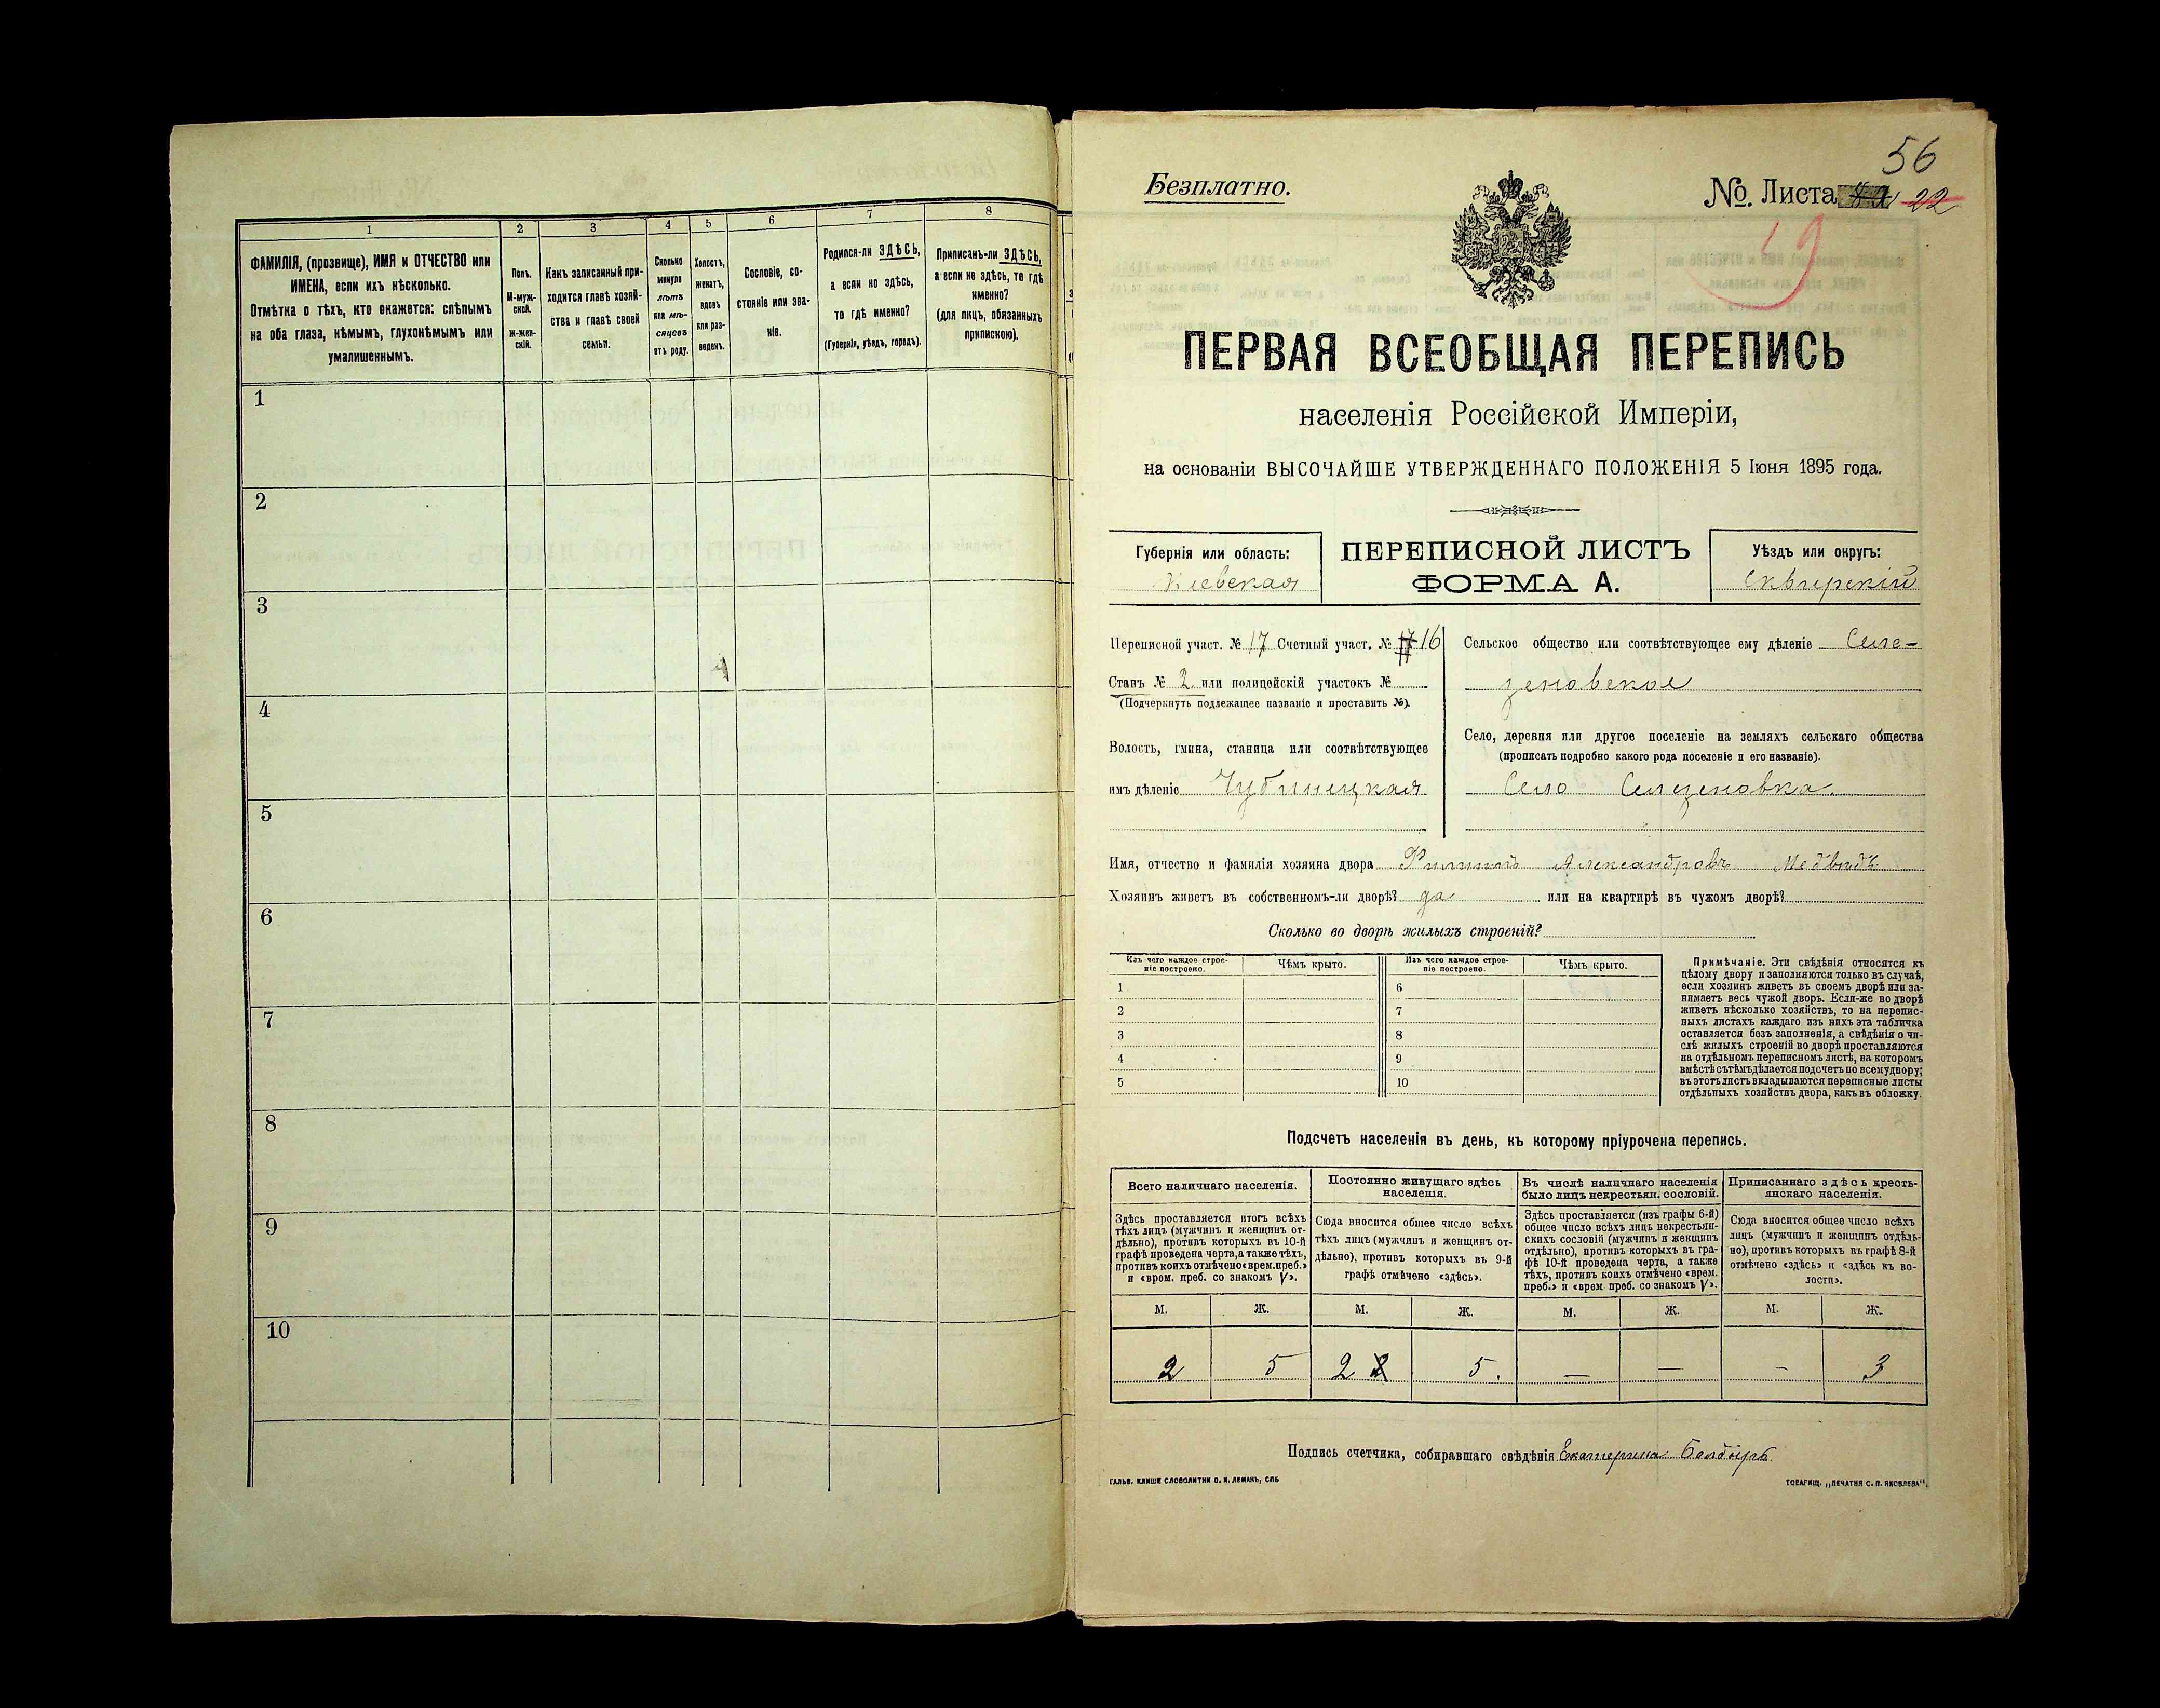 1
2
3
4
5
6
7
8
ФАМИЛІЯ, (прозвище), ИМЯ и ОТЧЕСТВО или
ИМЕНА, если ихъ нѣсколько.
Отмѣтка о тѣхъ, кто окажется: слѣпымъ
на оба глаза, нѣмымъ, глухонѣмымъ или
умалишеннымъ.
Полъ.
М-муж-
ской.
Ж-жен-
скій.
Какъ записанный при-
ходится главѣ хозяй-
ства и главѣ своей
семьи.
Сколько
минуло
лѣтъ
или мѣ-
сяцевъ
отъ роду.
Холостъ,
женатъ,
вдовъ
или раз-
веденъ.
Сословіе, со-
стояніе или зва-
ніе.
Родился-ли ЗДѢСЬ,
а если не здѣсь,
то гдѣ именно?
(Губернія, уѣздъ, городъ).
Приписанъ-ли ЗДѢСЬ,
а если не здѣсь, то гдѣ
именно?
(для лицъ, обязанныхъ
припискою).
1
2
3
4
5
6
7
8
9
10
56
Безплатно.
№. Листа 22
19
ПЕРВАЯ ВСЕОБЩАЯ ПЕРЕПИСЬ
населенія Россійской Имперіи,
на основаніи ВЫСОЧАЙШЕ УТВЕРЖДЕННАГО ПОЛОЖЕНІЯ 5 Іюня 1895 года.
Губернія или область:
Кіевская
ПЕРЕПИСНОЙ ЛИСТЪ
ФОРМА А.
Уѣздъ или округъ:
Сквирскій
Переписной участ. № 17 Счетный участ. № 17 16
Станъ № 2 или полицейскій участокъ №
(Подчеркнуть подлежащее названіе и проставить №).
Волость, гмина, станица или соотвѣтствующее
имъ дѣленіе Чубинецкая
Сельское общество или соотвѣтствующее ему дѣленіе Селе-
зеновское
Село, деревня или другое поселеніе на земляхъ сельскаго общества
(прописать подробно какого рода поселеніе и его названіе).
Село Селезеновка.
Имя, отчество и фамилія хозяина двора Филиппъ Александровъ Медвидь
Хозяинъ живетъ въ собственномъ-ли дворѣ? да или на квартирѣ въ чужомъ дворѣ?
Сколько во дворѣ жилыхъ строеній?
Изъ чего каждое строе-
ніе построено.
Чѣмъ крыто.
Изъ чего каждое строе-
ніе построено.
Чѣмъ крыто.
1 6
2 7
3 8
4 9
5 10
Примѣчаніе. Эти свѣдѣнія относятся къ
цѣлому двору и заполняются только въ случаѣ,
если хозяинъ живетъ въ своемъ дворѣ или за-
нимаетъ весь чужой дворъ. Если-же во дворѣ
живетъ нѣсколько хозяйствъ, то на перепис-
ныхъ листахъ каждаго изъ нихъ эта табличка
оставляется безъ заполненія, а свѣдѣнія о чи-
слѣ жилыхъ строеній во дворѣ проставляются
на отдѣльномъ переписномъ листѣ, на которомъ
вмѣстѣ съ тѣмъ дѣлается подсчетъ по всему двору;
въ этотъ листъ вкладываются переписные листы
отдѣльныхъ хозяйствъ двора, какъ въ обложку.
Подсчетъ населенія въ день, къ которому пріурочена перепись.
Всего наличнаго населенія.
Постоянно живущаго здѣсь
населенія.
Въ числѣ наличнаго населенія
было лицъ некрестьян. сословій.
Приписаннаго здѣсь кресть-
янскаго населенія.
Здѣсь проставляется итогъ всѣхъ
тѣхъ лицъ (мужчинъ и женщинъ от-
дѣльно), противъ которыхъ въ 10-й
графѣ проведена черта, а также тѣхъ,
противъ коихъ отмѣчено «врем. преб.»
и «врем. преб. со знакомъ V».
Сюда вносится общее число всѣхъ
тѣхъ лицъ (мужчинъ и женщинъ от-
дѣльно), противъ которыхъ въ 9-й
графѣ отмѣчено «здѣсь».
Здѣсь проставляется (изъ графы 6-й)
общее число всѣхъ лицъ некрестьян-
скихъ сословій (мужчинъ и женщинъ
отдѣльно), противъ которыхъ въ гра-
фѣ 10-й проведена черта, а также
тѣхъ, противъ коихъ отмѣчено «врем.
преб.» и «врем преб. со знакомъ V».
Сюда вносится общее число всѣхъ
лицъ (мужчинъ и женщинъ отдѣль-
но), противъ которыхъ въ графѣ 8-й
отмѣчено «здѣсь» и «здѣсь къ во-
лости».
М. Ж. М. Ж. М. Ж. М. Ж.
2 5 2 2 5. — — — 3
Подпись счетчика, собиравшаго свѣдѣнія Екатерина Болдырь
ГАЛЬВ. КЛИШЕ СЛОВОЛИТНИ О. И. ЛЕМАНЪ, СПБ
ТОВАРИЩ. „ПЕЧАТНЯ С. П. ЯКОВЛЕВА".